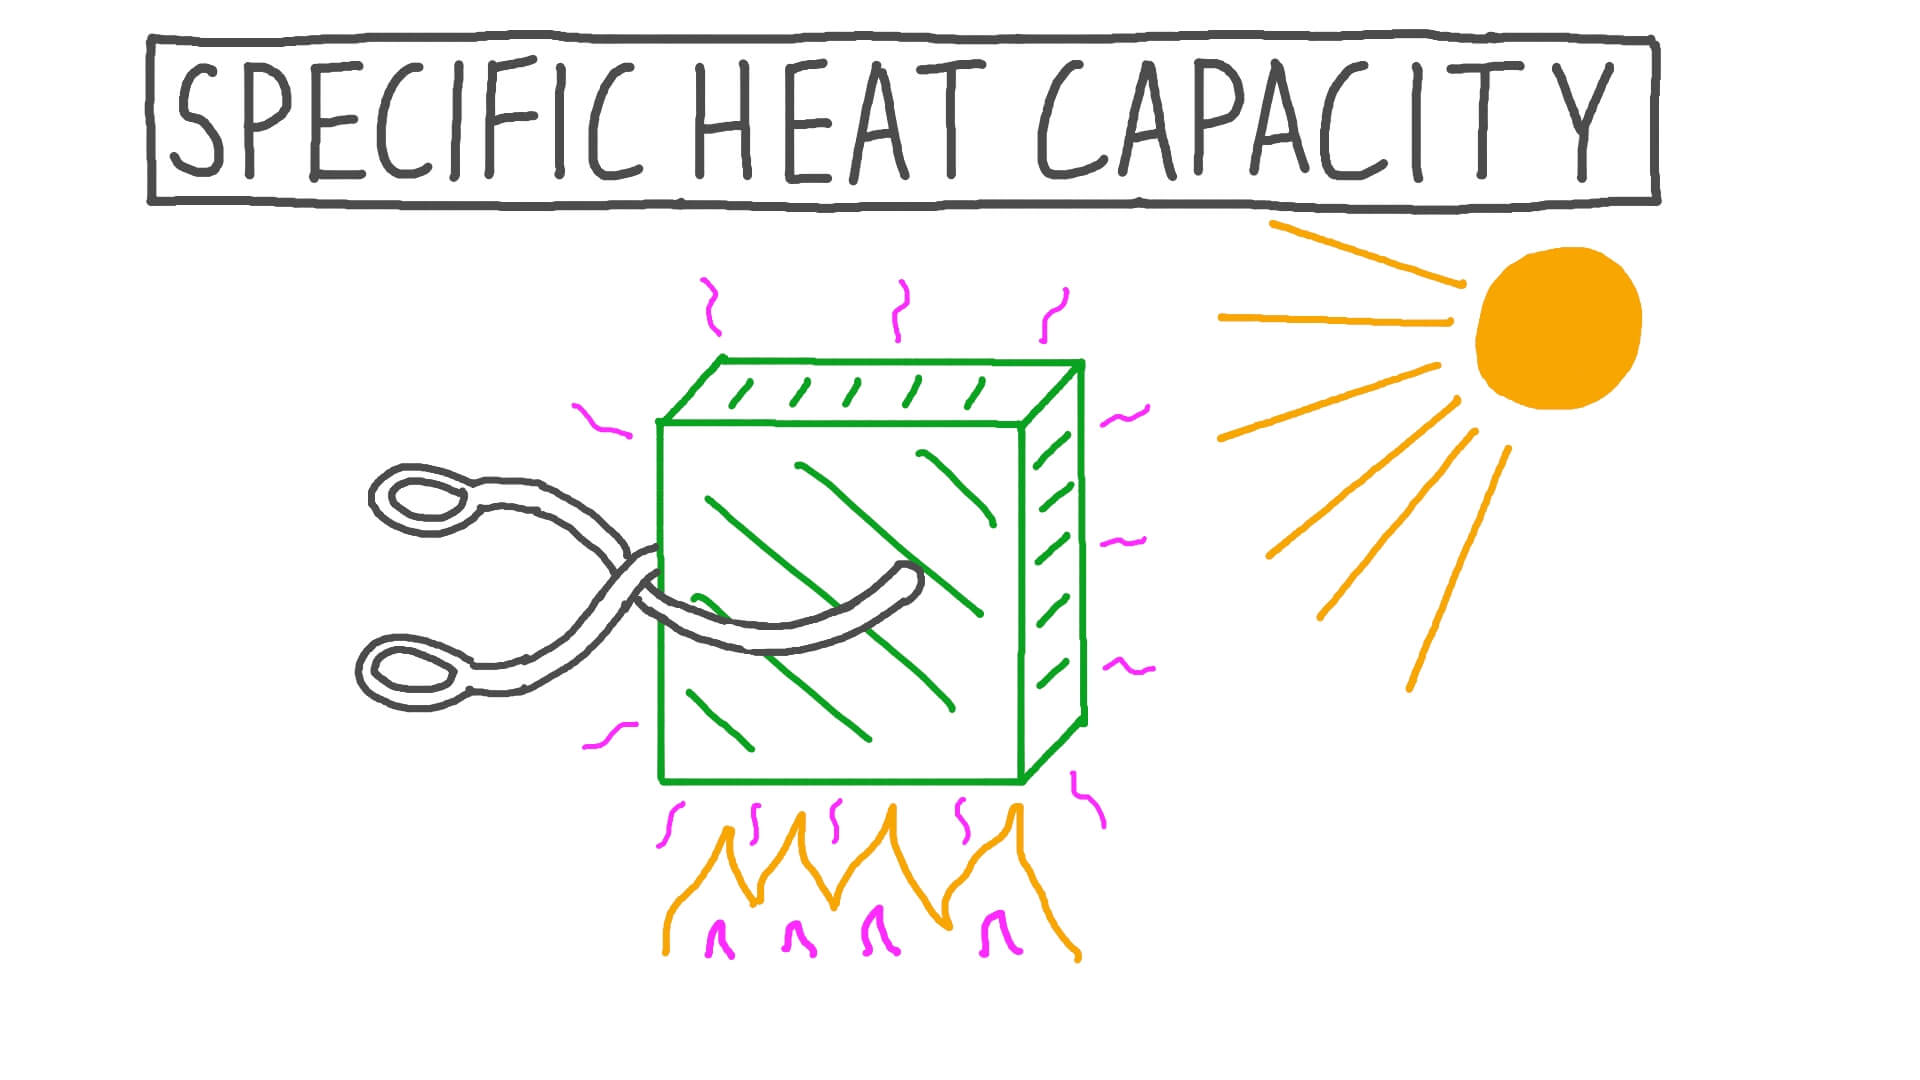 SPECIFIC HEAT CAPACITY